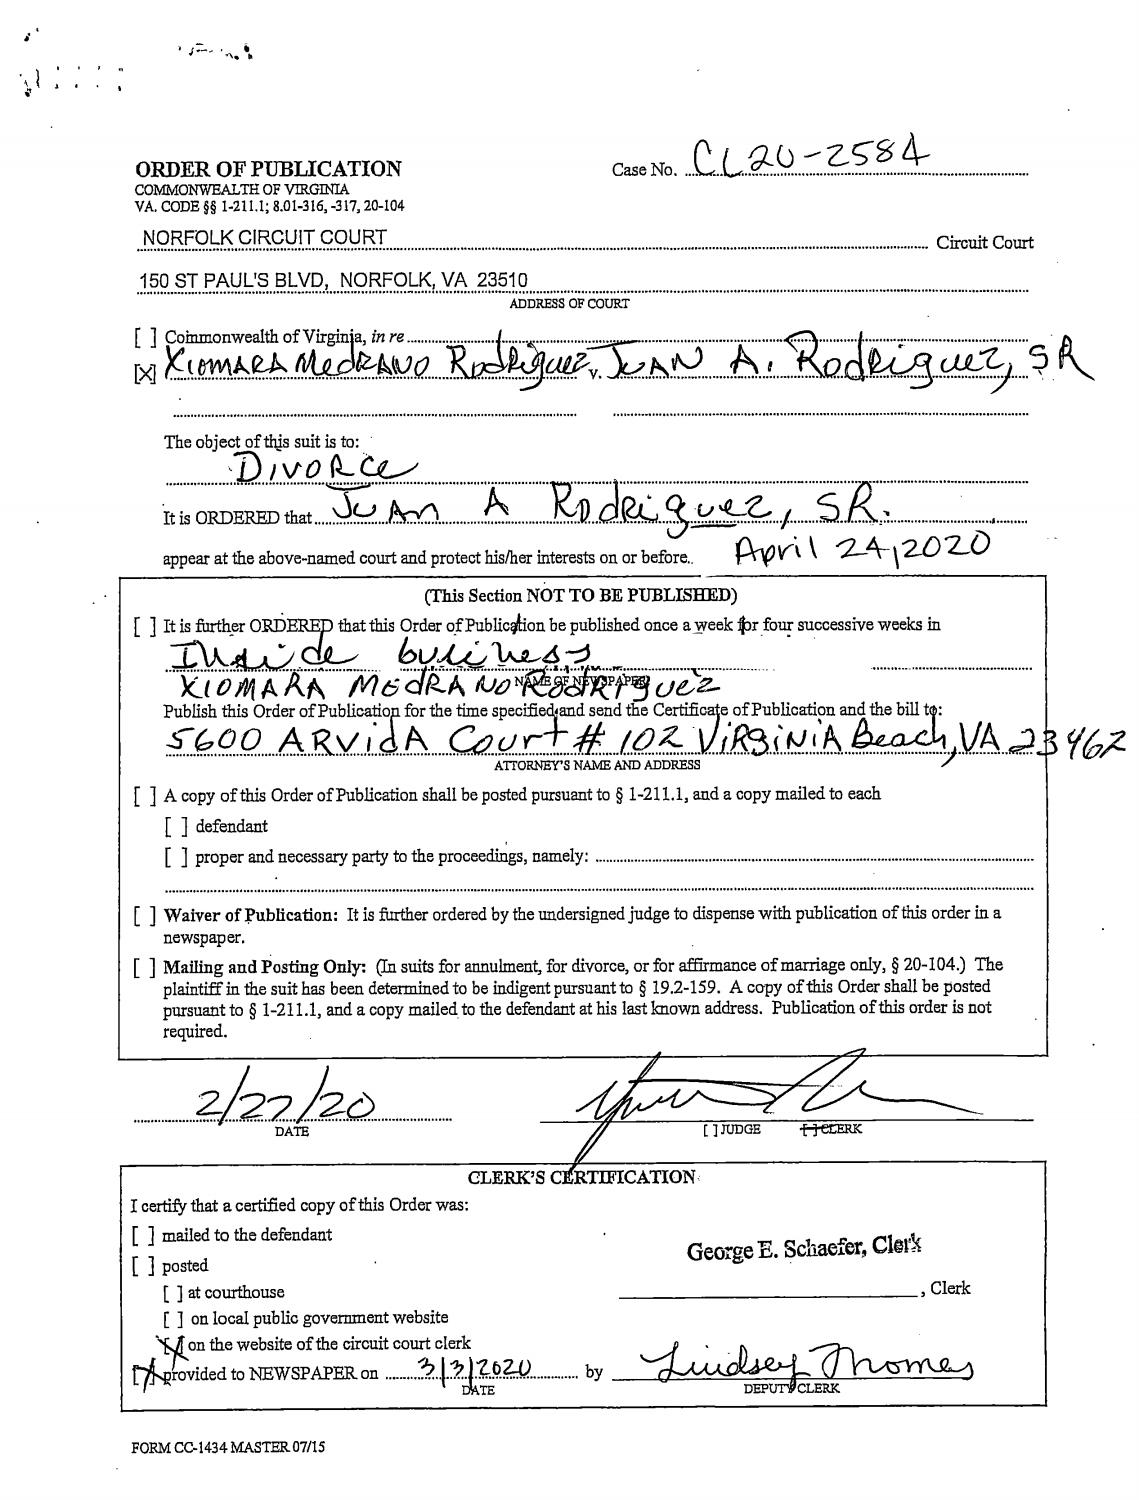 ORDER OF PUBLICATION
COMMONWEALTH OF VIRGINIA
VA. CODE §§ 1-211.1; 8.01-316, -317, 20-104
Case No. CL20-2584
NORFOLK CIRCUIT COURT Circuit Court
150 ST PAUL'S BLVD, NORFOLK, VA 23510
ADDRESS OF COURT
[ ] Commonwealth of Virginia, in re
[X] XIOMARA MEDRANO Rodriguez v. JUAN A. Rodriguez, SR
The object of this suit is to:
DIVORCE
It is ORDERED that JUAN A Rodriguez, SR.
appear at the above-named court and protect his/her interests on or before April 24, 2020
(This Section NOT TO BE PUBLISHED)
[ ] It is further ORDERED that this Order of Publication be published once a week for four successive weeks in
Inside business
NAME OF NEWSPAPER
XIOMARA MEdRANO Rodriguez
Publish this Order of Publication for the time specified and send the Certificate of Publication and the bill to:
5600 ARVidA Court # 102 ViRginiA Beach, VA 23462
ATTORNEY'S NAME AND ADDRESS
[ ] A copy of this Order of Publication shall be posted pursuant to § 1-211.1, and a copy mailed to each
[ ] defendant
[ ] proper and necessary party to the proceedings, namely:
[ ] Waiver of Publication: It is further ordered by the undersigned judge to dispense with publication of this order in a
newspaper.
[ ] Mailing and Posting Only: (In suits for annulment, for divorce, or for affirmance of marriage only, § 20-104.) The
plaintiff in the suit has been determined to be indigent pursuant to § 19.2-159. A copy of this Order shall be posted
pursuant to § 1-211.1, and a copy mailed to the defendant at his last known address. Publication of this order is not
required.
2/27/20
DATE
[ ] JUDGE [ ] CLERK
CLERK'S CERTIFICATION
I certify that a certified copy of this Order was:
[ ] mailed to the defendant
George E. Schaefer, Clerk
[ ] posted
[ ] at courthouse
, Clerk
[ ] on local public government website
[X] on the website of the circuit court clerk
[X] provided to NEWSPAPER on 3/3/2020 by Lindsey Thomas
DATE
DEPUTY CLERK
FORM CC-1434 MASTER 07/15